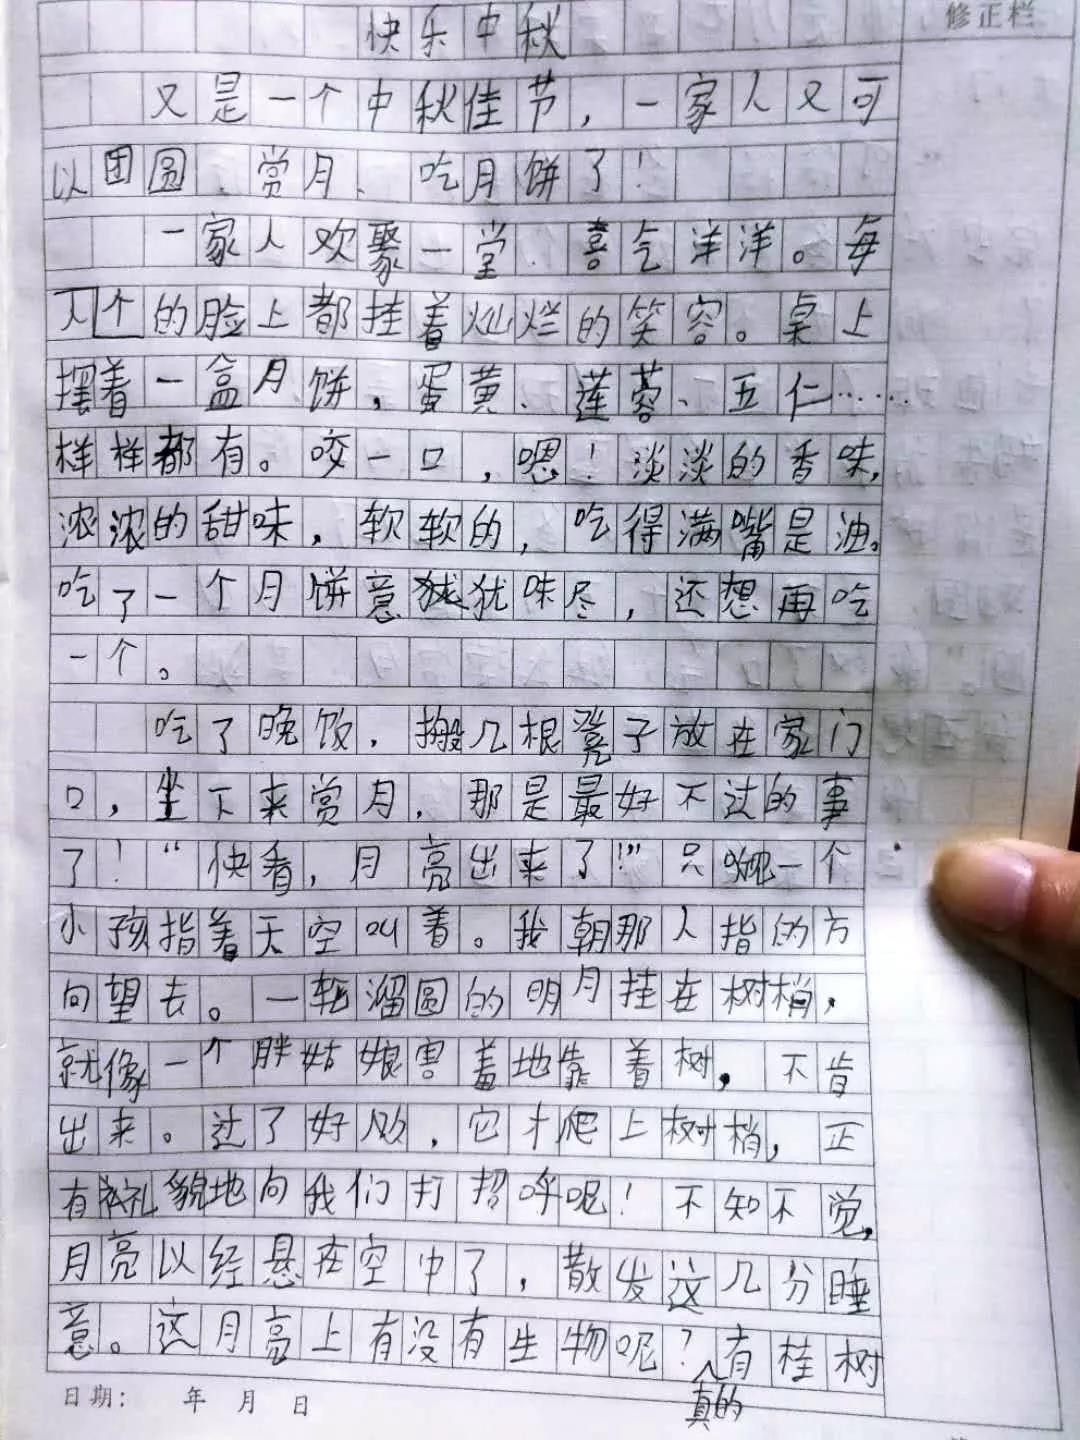 修正栏
快乐中秋
又是一个中秋佳节，一家人又可
以团圆、赏月、吃月饼了！
一家人欢聚一堂、喜气洋洋。每
个的脸上都挂着灿烂的笑容。桌上
摆着一盒月饼，蛋黄、莲蓉、五仁……
样样都有。咬一口，嗯！淡淡的香味，
浓浓的甜味，软软的，吃得满嘴是油。
吃了一个月饼意犹犹味尽，还想再吃
一个。
吃了晚饭，搬几根凳子放在家门
口，坐下来赏月，那是最好不过的事
了！“快看，月亮出来了！”只一个
小孩指着天空叫着。我朝那人指的方
向望去。一轮溜圆的明月挂在树梢，
就像一个胖姑娘害羞地靠着树，不肯
出来。过了好久，它才爬上树梢，正
有礼貌地向我们打招呼呢！不知不觉，
月亮以经悬在空中了，散发这几分睡
意。这月亮上有没有生物呢？真的有桂树
日期： 年 月 日